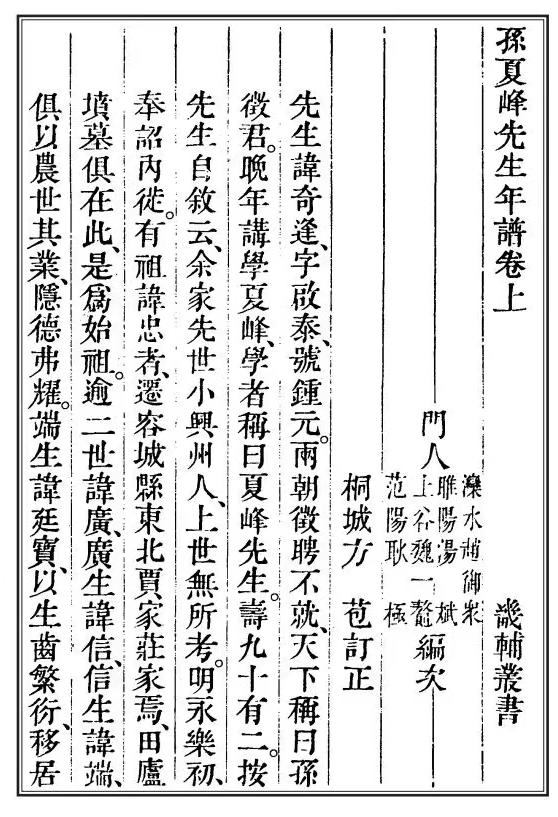 孫夏峰先生年譜卷上　畿輔叢書
門人
灤水趙御衆
睢陽湯　斌
上谷魏一鼇
范陽耿　極
編次
桐城方　苞訂正
先生諱奇逢、字啟泰、號鍾元。兩朝徵聘不就、天下稱曰孫
徵君。晚年講學夏峰、學者稱曰夏峰先生。壽九十有二。按
先生自敘云、余家先世小興州人、上世無所考。明永樂初、
奉詔內徙。有祖諱忠者、遷容城縣東北賈家莊家焉、田廬
墳墓俱在此、是爲始祖。逾二世諱廣、廣生諱信、信生諱端、
俱以農世其業、隱德弗耀。端生諱廷寶、以生齒繁衍、移居